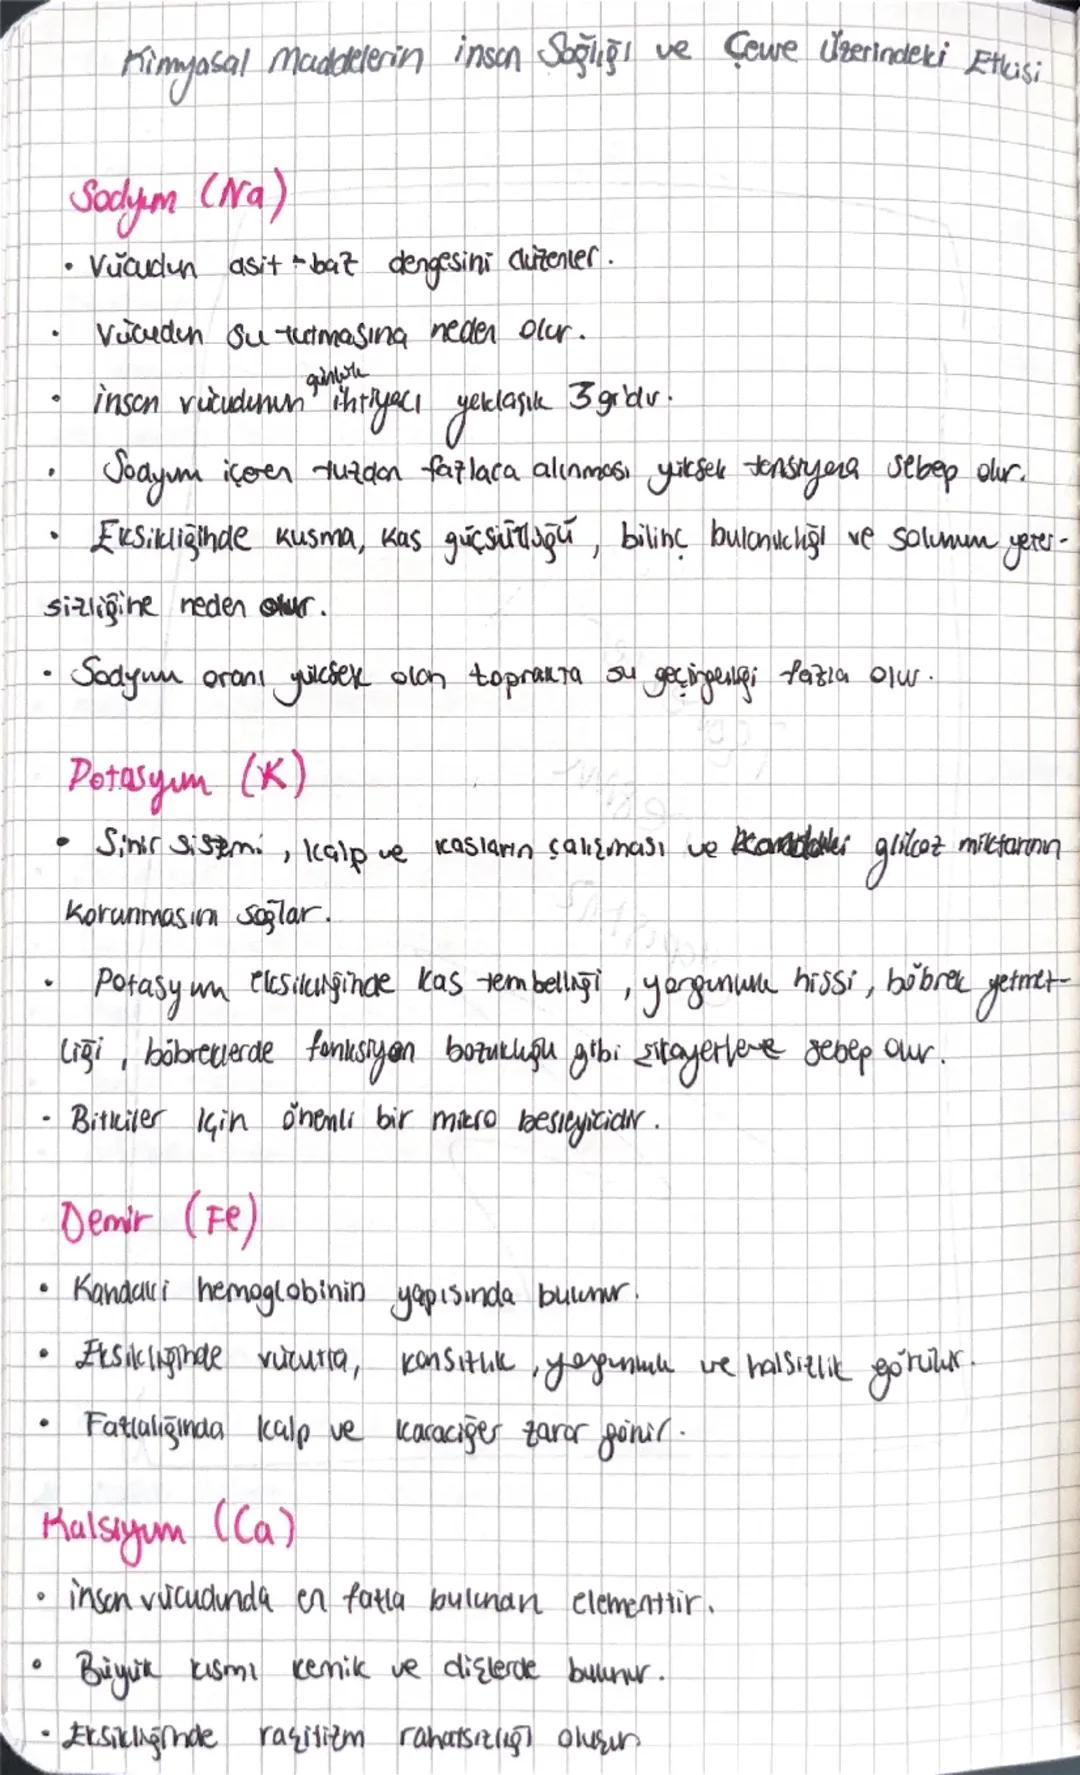 Kimyasal Maddelerin insan Sağlığı ve Çevre Üzerindeki Etkisi
Sodyum (Na)
• Vücudun asit-baz dengesini düzenler.
• Vücudun su tutmasına neden olur.
günlük
• insan vücudunun ihtiyacı yaklaşık 3 gr'dır.
• Sodyum içeren tuzdan fazlaca alınması yüksek tansiyona sebep olur.
• Eksikliğinde kusma, kas güçsüzlüğü, bilinç bulanıklığı ve solunum yeter-
sizliğine neden olur.
• Sodyum oranı yüksek olan toprakta su geçirgenliği fazla olur.
Potasyum (K)
• Sinir sistemi, kalp ve kasların çalışması ve kandaki glikoz miktarının
korunmasını sağlar.
• Potasyum eksikliğinde kas tembelliği, yorgunluk hissi, böbrek yetmez-
liği, böbreklerde fonksiyon bozukluğu gibi şikayetlere sebep olur.
• Bitkiler için önemli bir mikro besleyicidir.
Demir (Fe)
• Kandaki hemoglobinin yapısında bulunur.
• Eksikliğinde vücutta, kansızlık, yorgunluk ve halsizlik görülür.
• Fazlalığında kalp ve karaciğer zarar görür.
Kalsiyum (Ca)
• insan vücudunda en fazla bulunan elementtir.
• Büyük kısmı kemik ve dişlerde bulunur.
• Eksikliğinde raşitizm rahatsızlığı oluşur